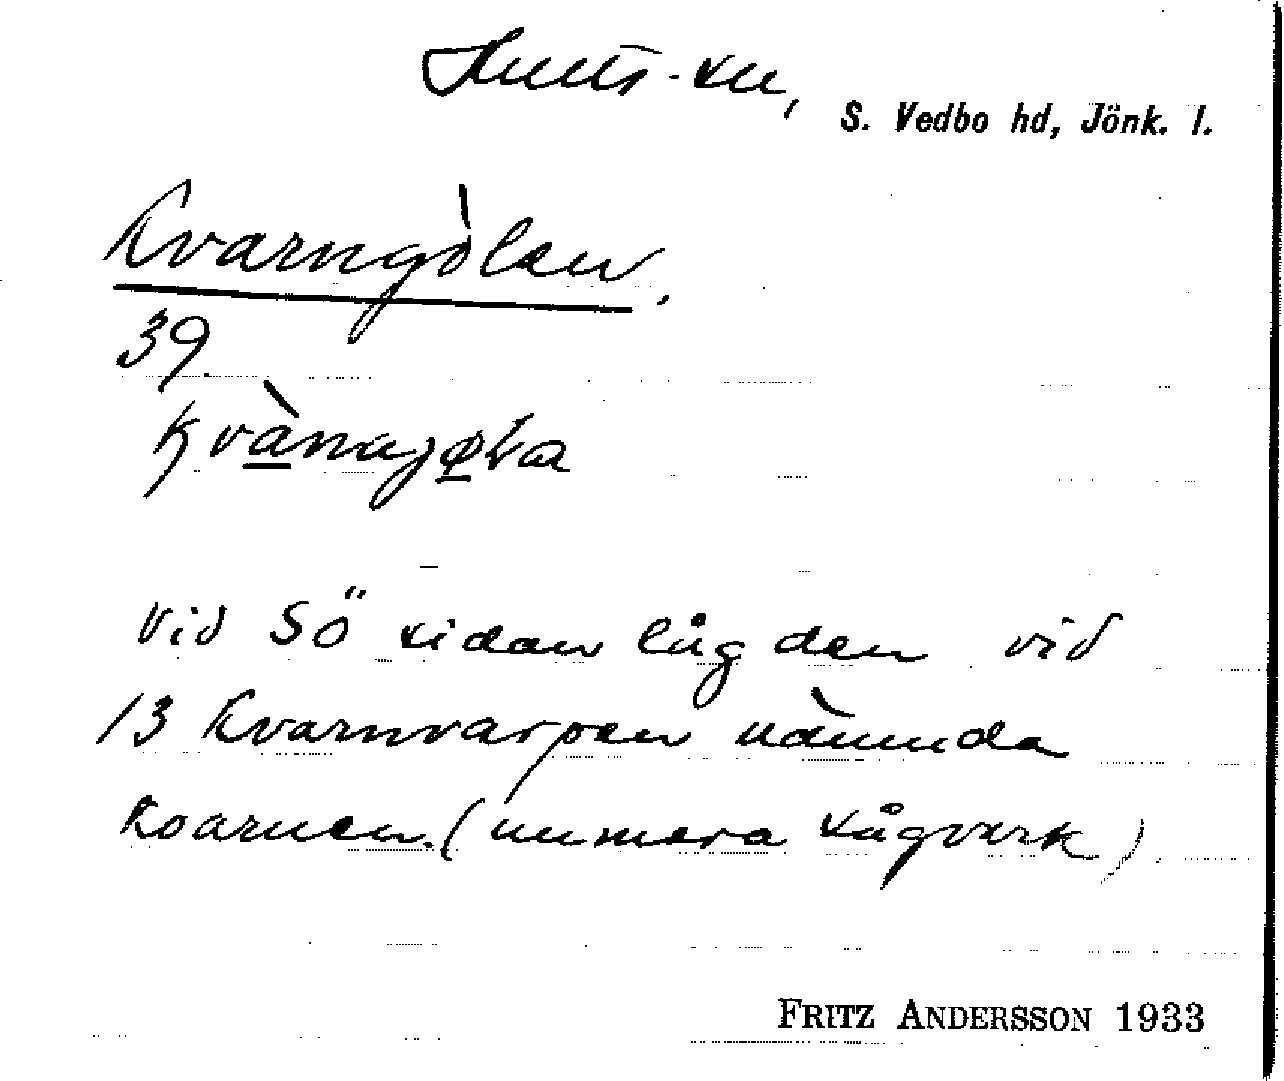 Hults sn,
S. Vedbo hd, Jönk. l.
Kvarngölen.
39
Vid SÖ sidan låg den vid
13 Kvarnvarpen nämnda
kvarnen. (numera sågverk)
FRITZ ANDERSSON 1933